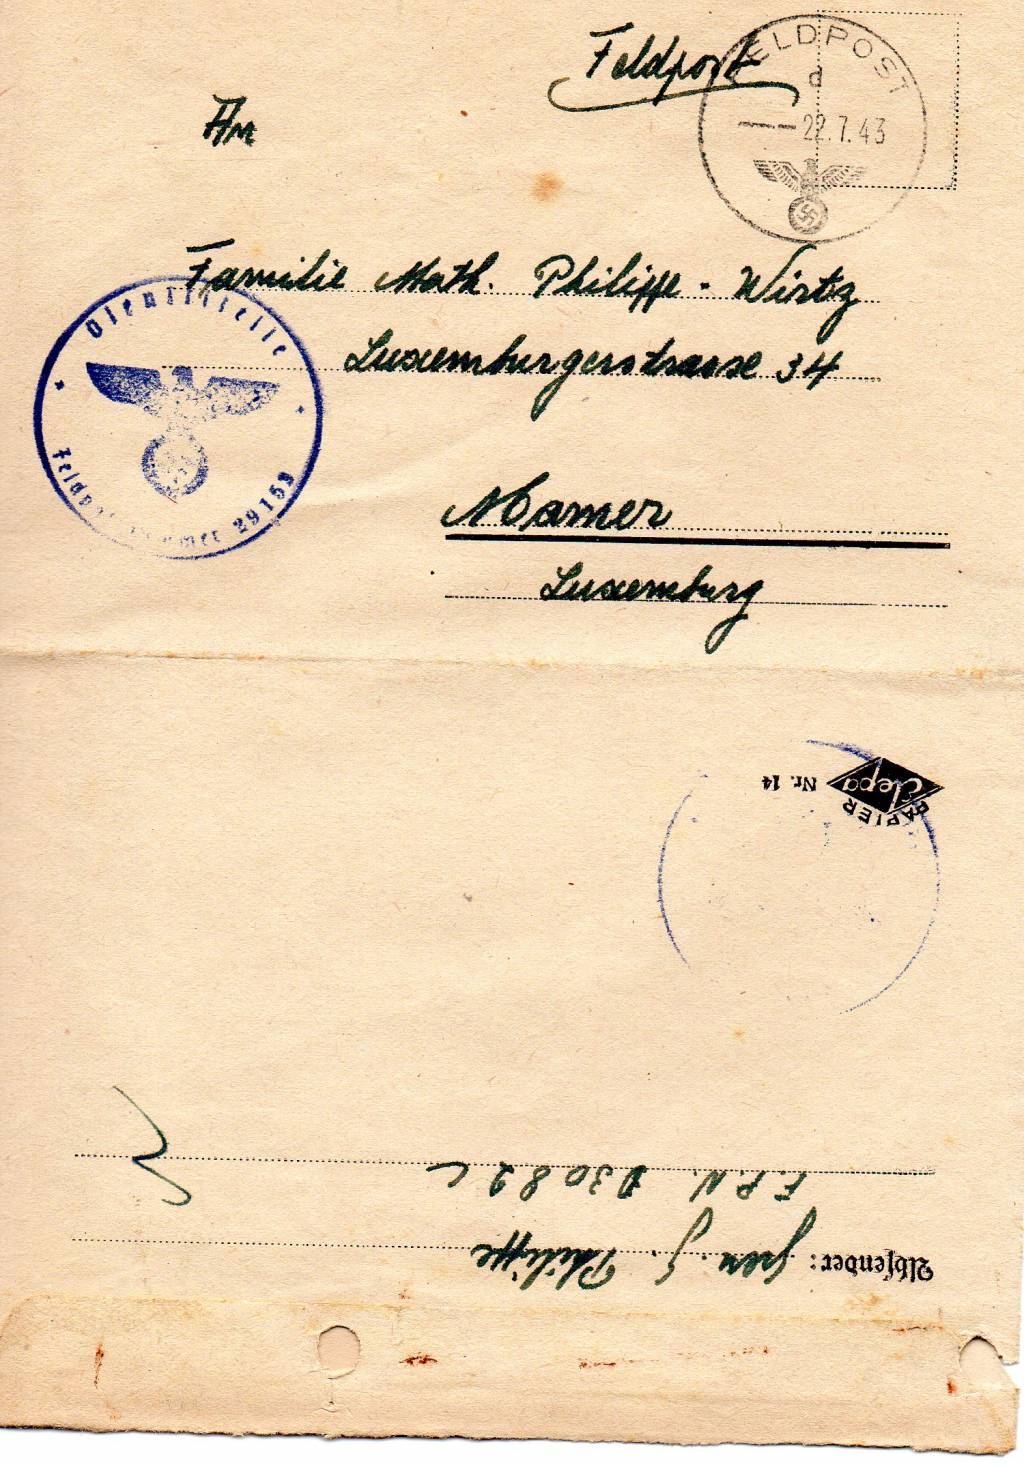 Feldpost
FELDPOST
d
22.7.43
An
Familie Math. Philippe - Wirtz
Luxemburgerstrasse 34
Mamer
Luxemburg
Dienststelle
Feldpostnummer 29159
PAPIER
Elepa
Nr. 14
Absender: Gren. J. Philippe
F.P.N. 03082 C